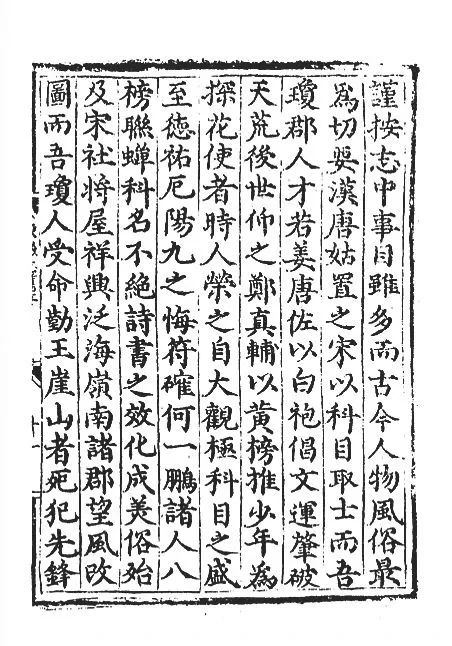 謹按志中事目雖多而古今人物風俗最
為切要漢唐姑置之宋以科目取士而吾
瓊郡人才若姜唐佐以白袍倡文運肇破
天荒後世仰之鄭真輔以黃榜推少年為
探花使者時人榮之自大觀極科目之盛
至德祐厄陽九之悔符確何一鵬諸人八
榜聯蟬科名不絕詩書之效化成美俗始
及宋社將屋祥興泛海嶺南諸郡望風改
圖而吾瓊人受命勤王崖山者死犯先鋒